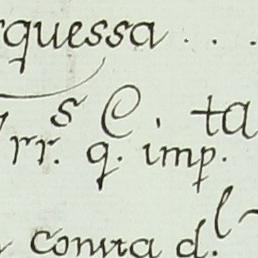 rquessa . . .
s C. ta
rr. q. imp.
conuta d.